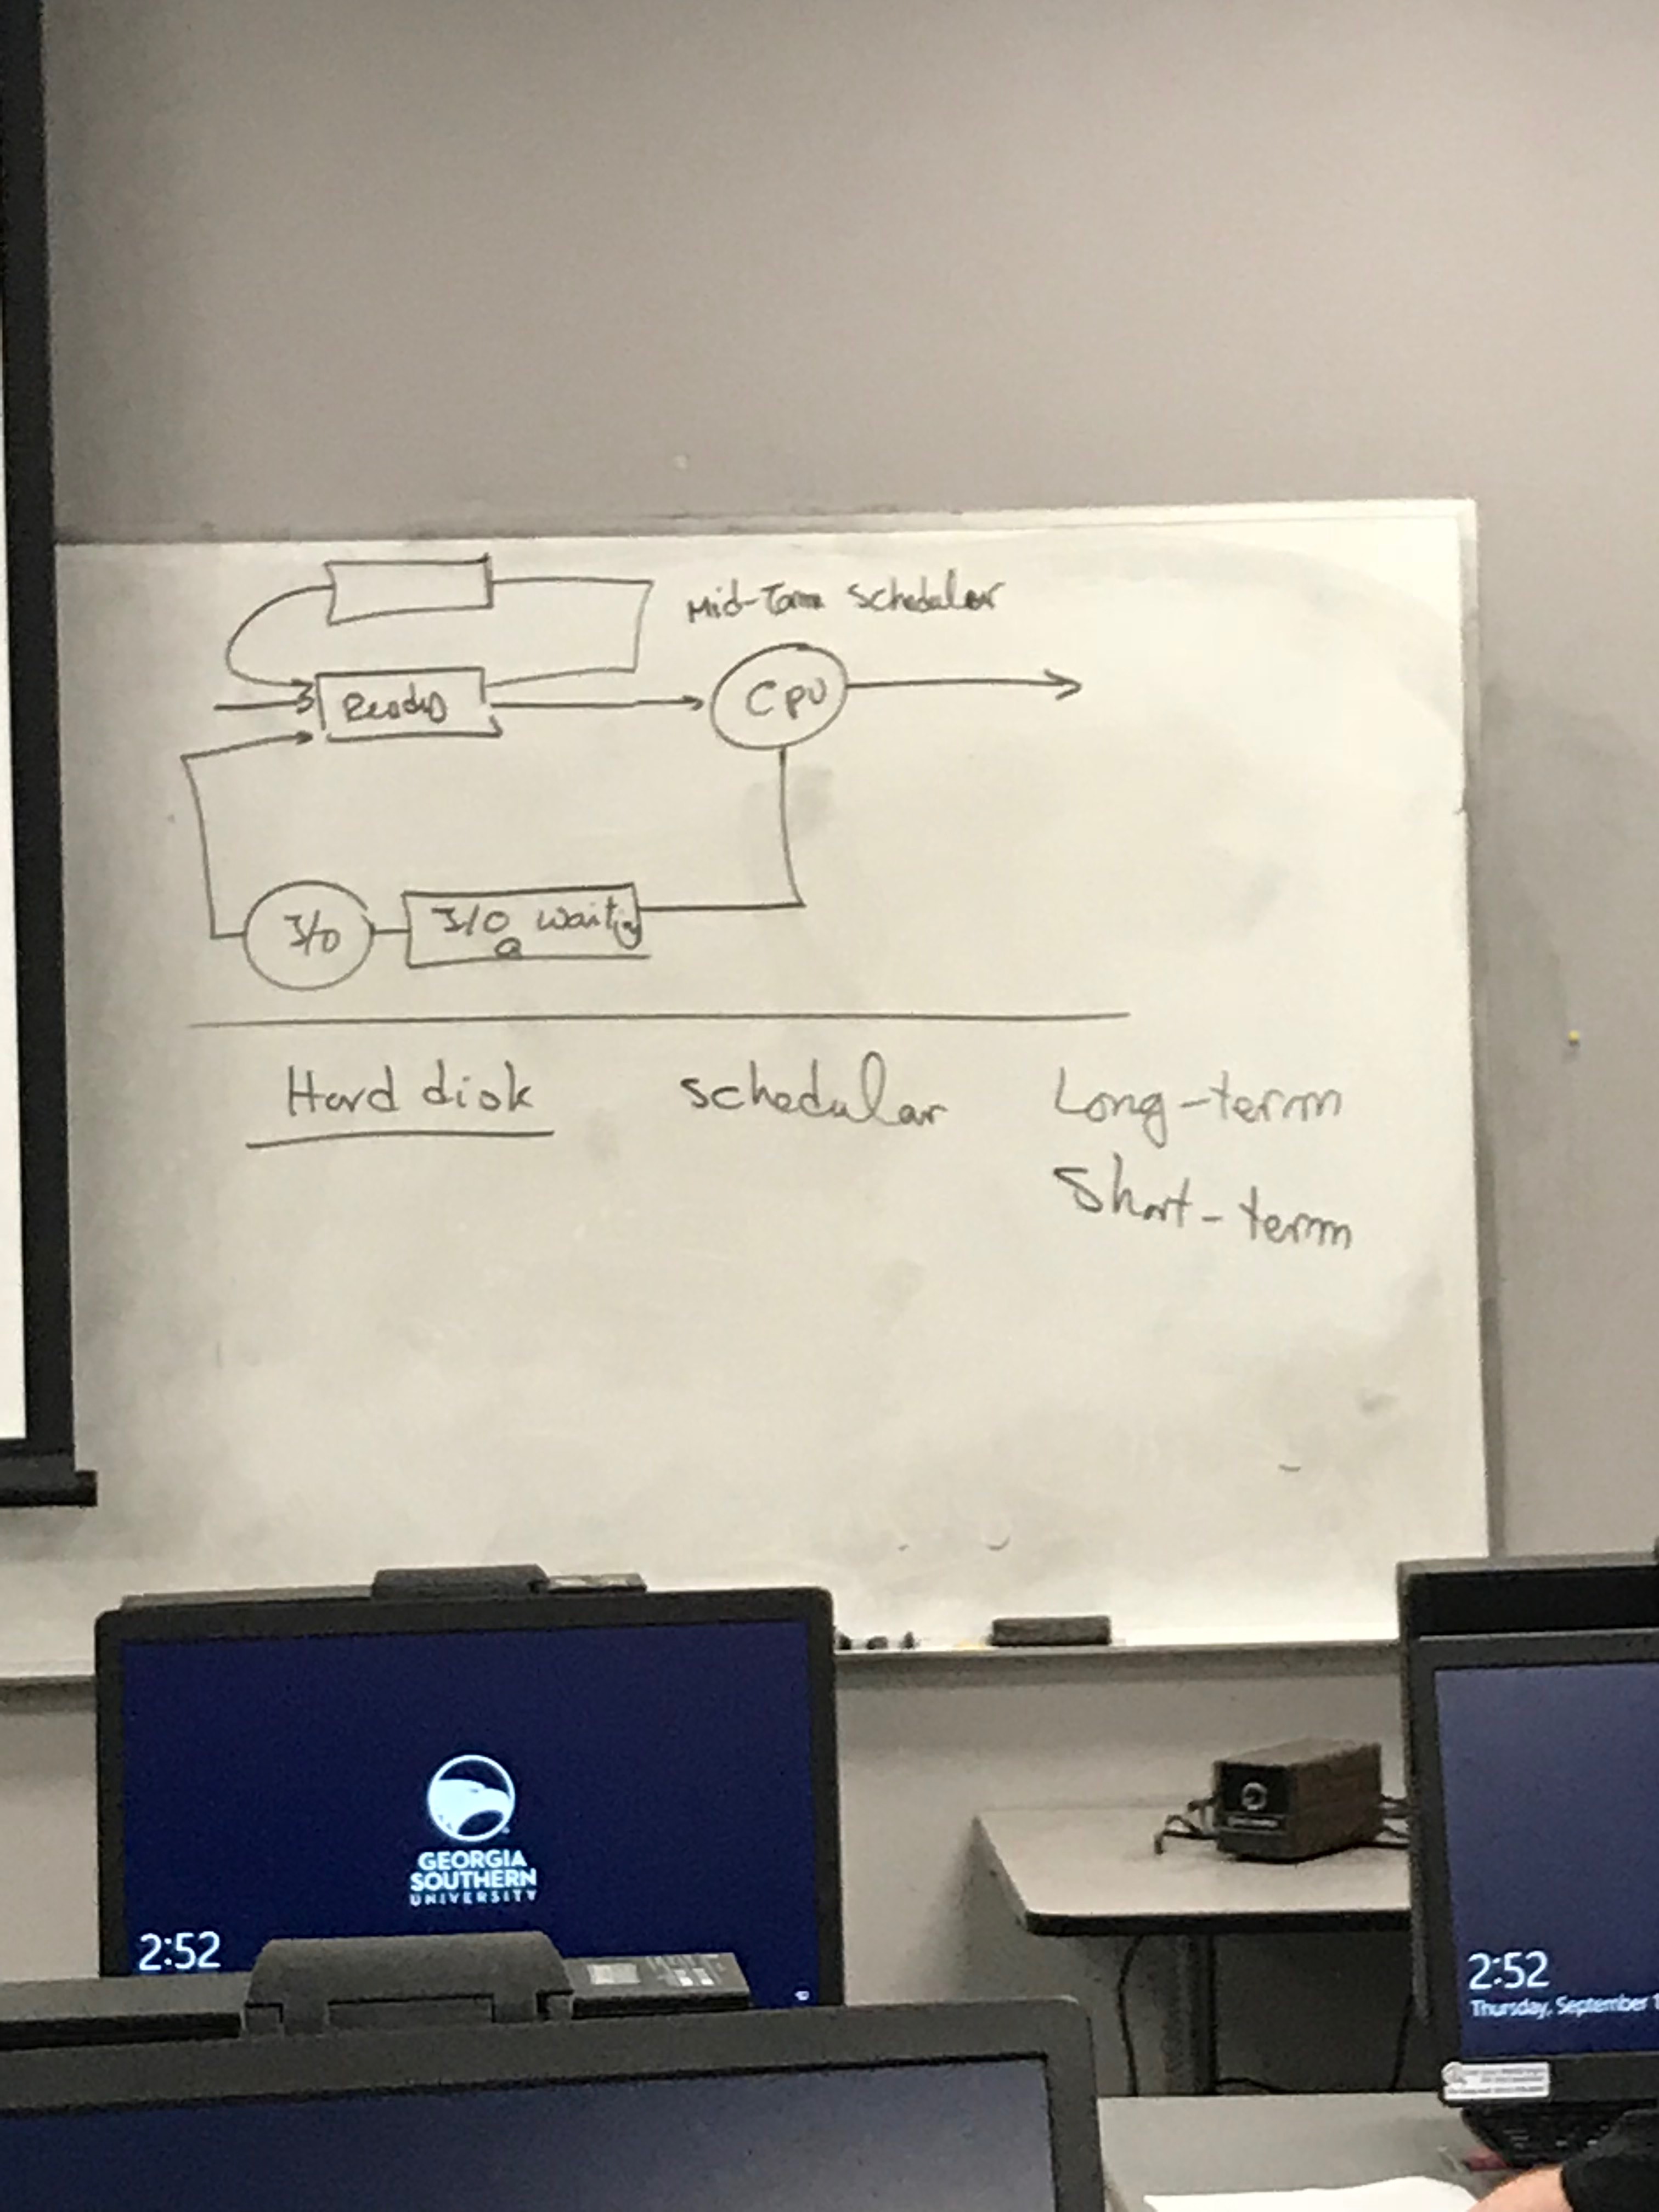 Mid-Term Schedular
Ready
CPU
I/O
I/O waiting
Q
Hard disk
schedular
Long-term
Short-term
GEORGIA
SOUTHERN
UNIVERSITY
2:52
2:52
Thursday, September 1